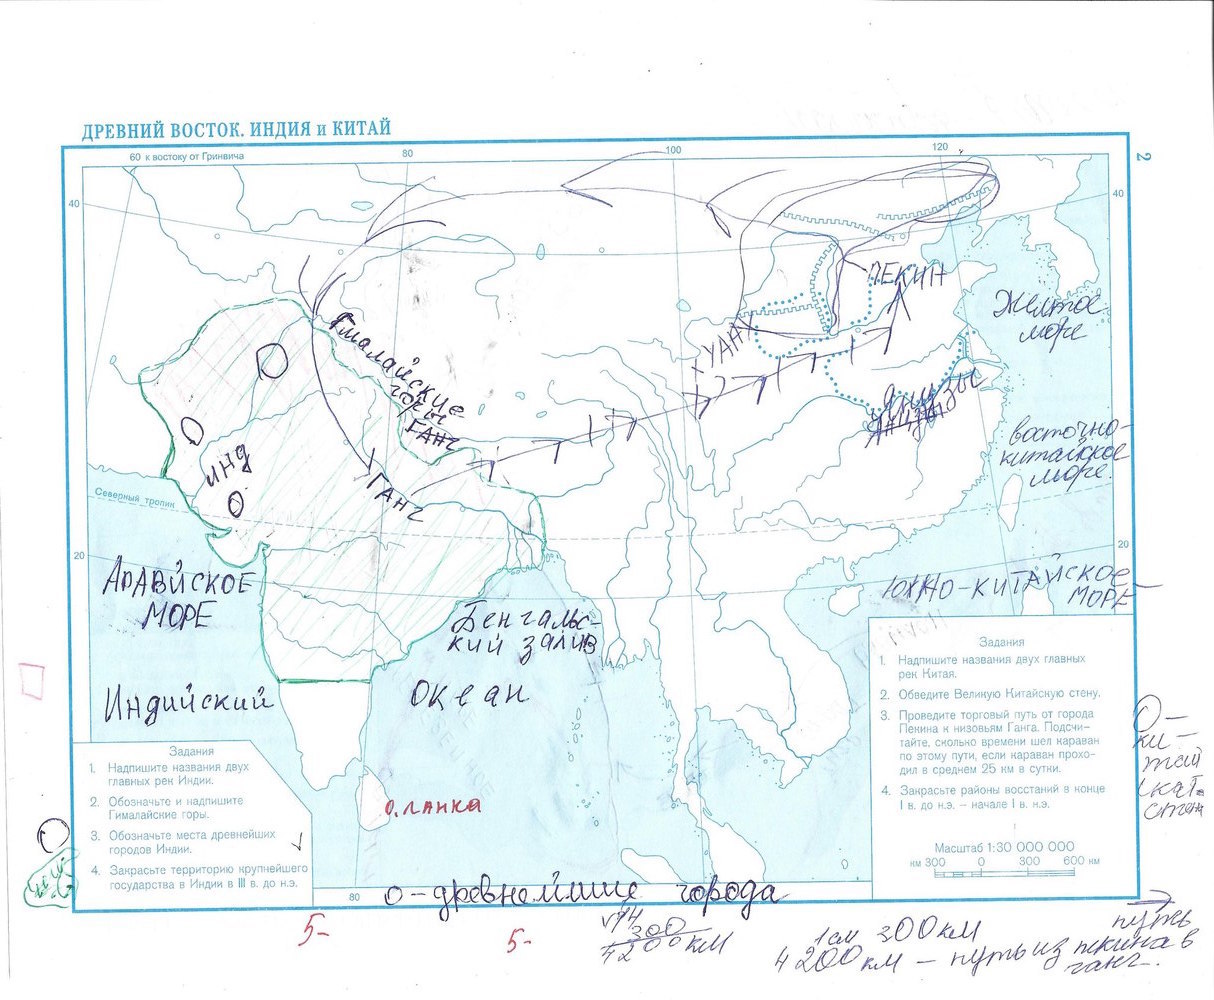 ДРЕВНИЙ ВОСТОК. ИНДИЯ и КИТАЙ
2
60 к востоку от Гринвича
80
100
120
40
40
ПЕКИН
Желтое
море
ХУАНХЭ
Гималайские
горы
ГАНГ
Янцзы
восточно-
китайское
море.
ИНД
ГАНГ
Северный тропик
20
20
АРАВИЙСКОЕ
МОРЕ
ЮЖНО-КИТАЙСКОЕ
МОРЕ
Бенгальс-
кий залив
Индийский
океан
о. ЛАНКА
Задания
1. Надпишите названия двух
главных рек Индии.
2. Обозначьте и надпишите
Гималайские горы.
3. Обозначьте места древнейших
городов Индии.
4. Закрасьте территорию крупнейшего
государства в Индии в III в. до н.э.
Задания
1. Надпишите названия двух главных
рек Китая.
2. Обведите Великую Китайскую стену.
3. Проведите торговый путь от города
Пекина к низовьям Ганга. Подсчи-
тайте, сколько времени шел караван
по этому пути, если караван прохо-
дил в среднем 25 км в сутки.
4. Закрасьте районы восстаний в конце
I в. до н.э. – начале I в. н.э.
Масштаб 1:30 000 000
км 300 0 300 600 км
О-
ки-
тай
скат
стена
80
О-древнейшие города
5-
5-
14
300
4200 км
1см 300км
4200км – путь из пекина в
ганг.
путь